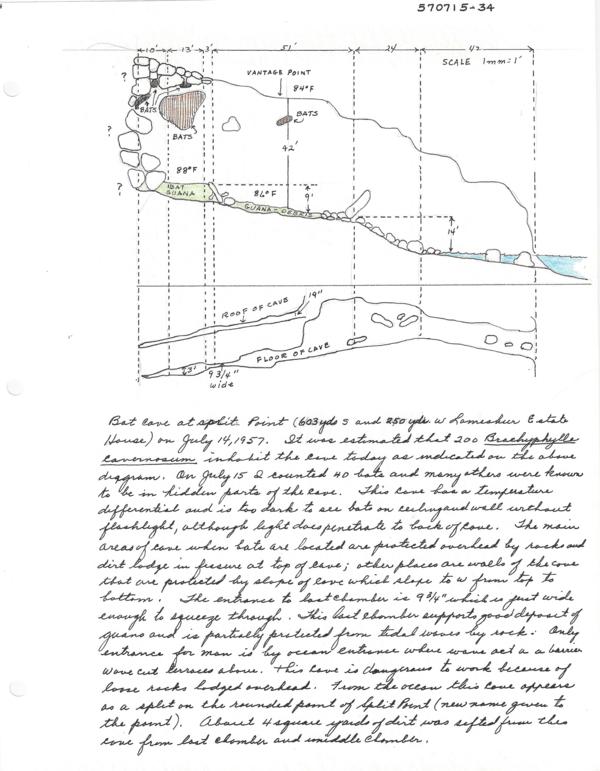 570715-34
10' 13' 3' 51' 24' 42'
SCALE 1mm=1'
VANTAGE POINT
84°F
?
BATS
BATS
BATS
42'
?
88°F
?
1 BAT GUANA
86°F
9'
GUANA-DEBRIS
14'
ROOF OF CAVE
19"
FLOOR OF CAVE
23'
9 3/4" wide
Bat Cave at split Point (603 yds S and 250 yds W Lameshur Estate
House) on July 14, 1957. It was estimated that 200 Brachyphylla
cavernosum inhabit the cave today as indicated on the above
diagram. On July 15 I counted 40 bats and many others were known
to be in hidden parts of the cave. This cave has a temperature
differential and is too dark to see bats on ceiling and wall without
flashlight, although light does penetrate to back of cave. The main
areas of cave when bats are located are protected overhead by rocks and
dirt lodge in fissure at top of cave; other places are walls of the cove
that are protected by slope of cove which slope to W from top to
bottom. The entrance to last chamber is 9 3/4" which is just wide
enough to squeeze through. This last chamber supports good deposit of
guano and is partially protected from tidal waves by rock. Only
entrance for man is by ocean entrance where wave act a a barrier
wave cut terraces above. This cave is dangerous to work because of
loose rocks lodged overhead. From the ocean this cave appears
as a split on the rounded point of Split Point (new name given to
the point). About 4 square yards of dirt was sifted from this
cove from last chamber and middle chamber.